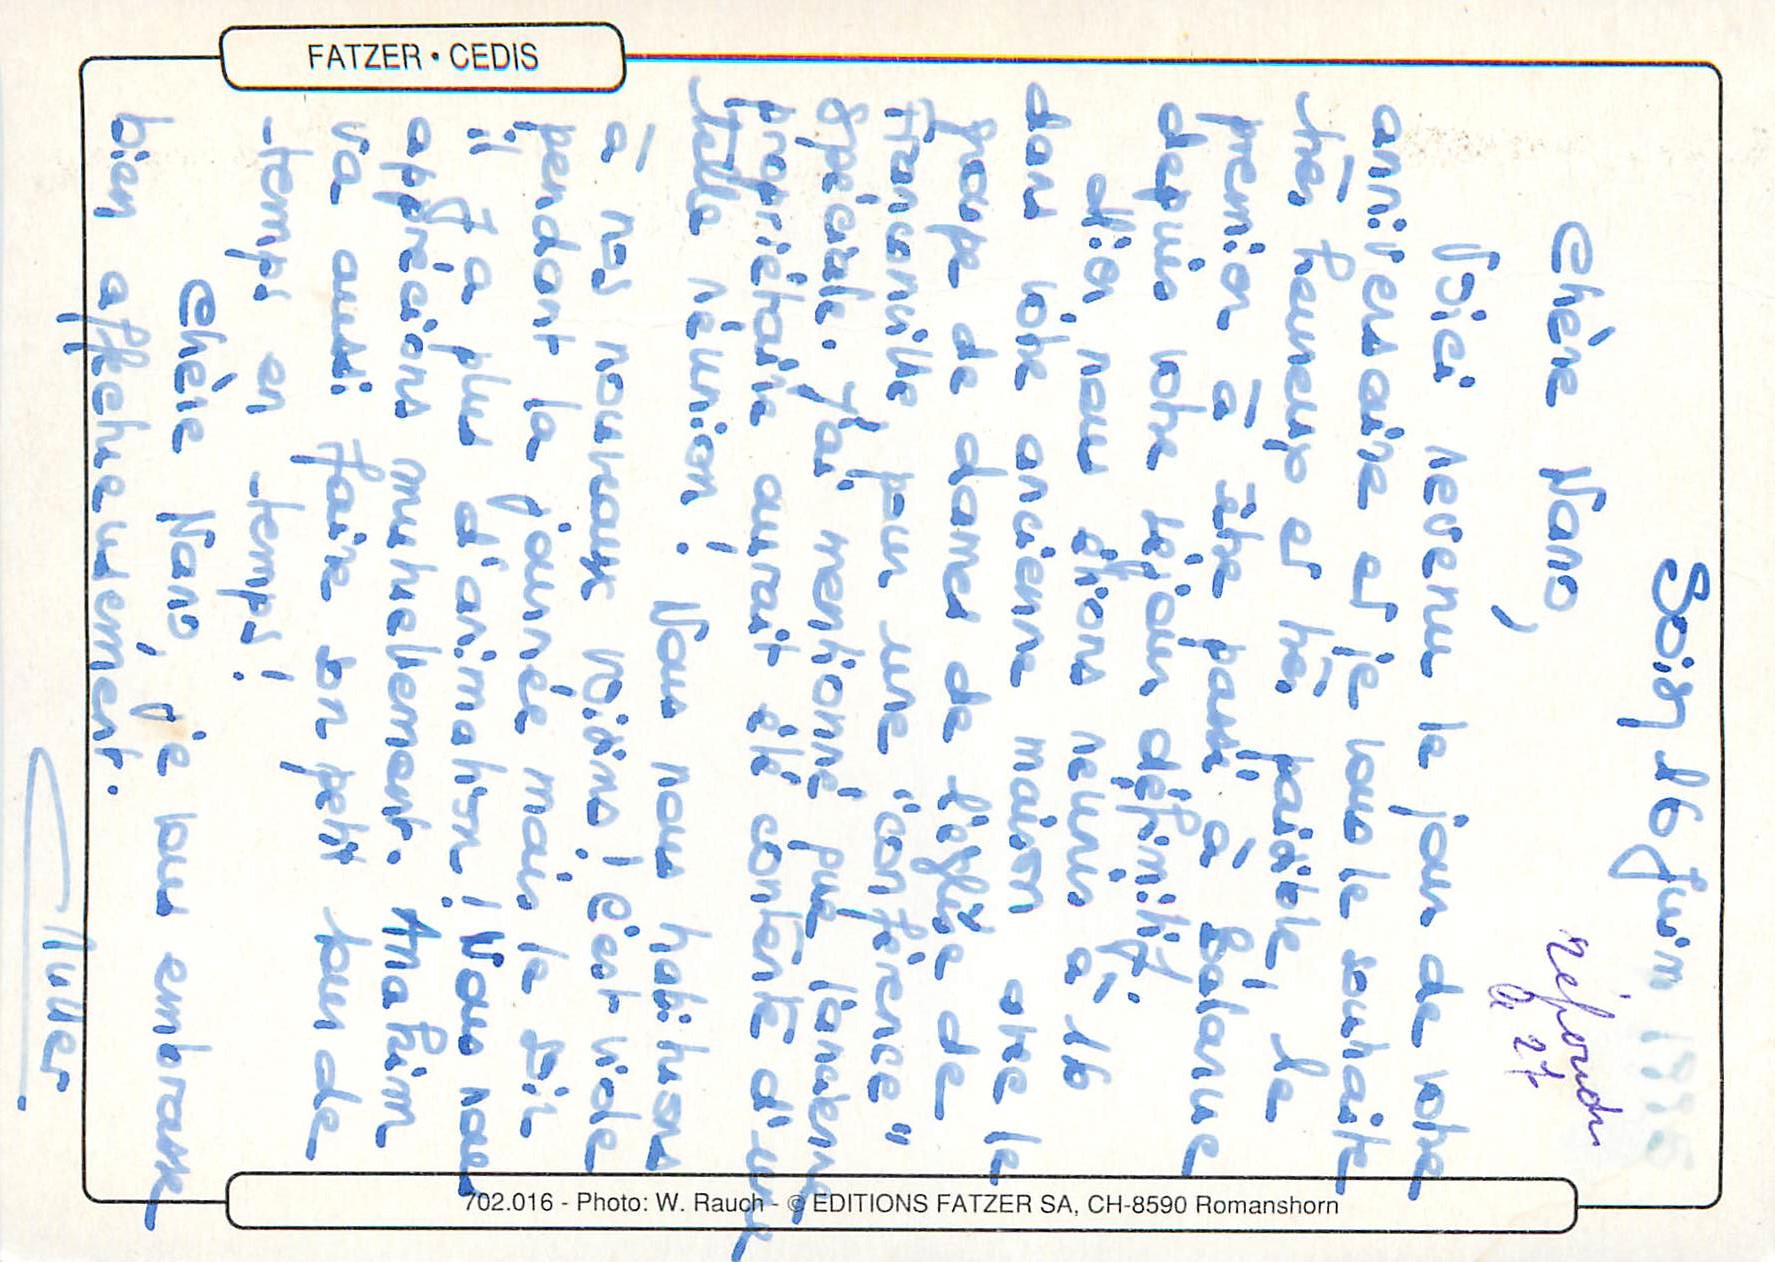 FATZER • CEDIS
Soisy 26 Juin 1995
répondu
le 27
Chère Nano,
Voici revenu le jour de votre
anniversaire et je vous le souhaite
très heureux et très paisible, le
premier à être passé à Bellerive
depuis votre séjour définitif.
Hier nous étions réunis à 16
dans votre ancienne maison avec le
groupe de dames de l'église de
Franconville pour une "conférence"
spéciale. J'ai mentionné que l'ancienne
propriétaire aurait été contente d'une
telle réunion !
Nous nous habituons
à nos nouveaux voisins ! C'est vide
pendant la journée mais le soir
il y a plus d'animation ! Nous nous
apprécions mutuellement.
va aussi faire son petit tour de
temps en temps !
Chère Nano, je vous embrasse
bien affectueusement.
702.016 - Photo: W. Rauch - © EDITIONS FATZER SA, CH-8590 Romanshorn